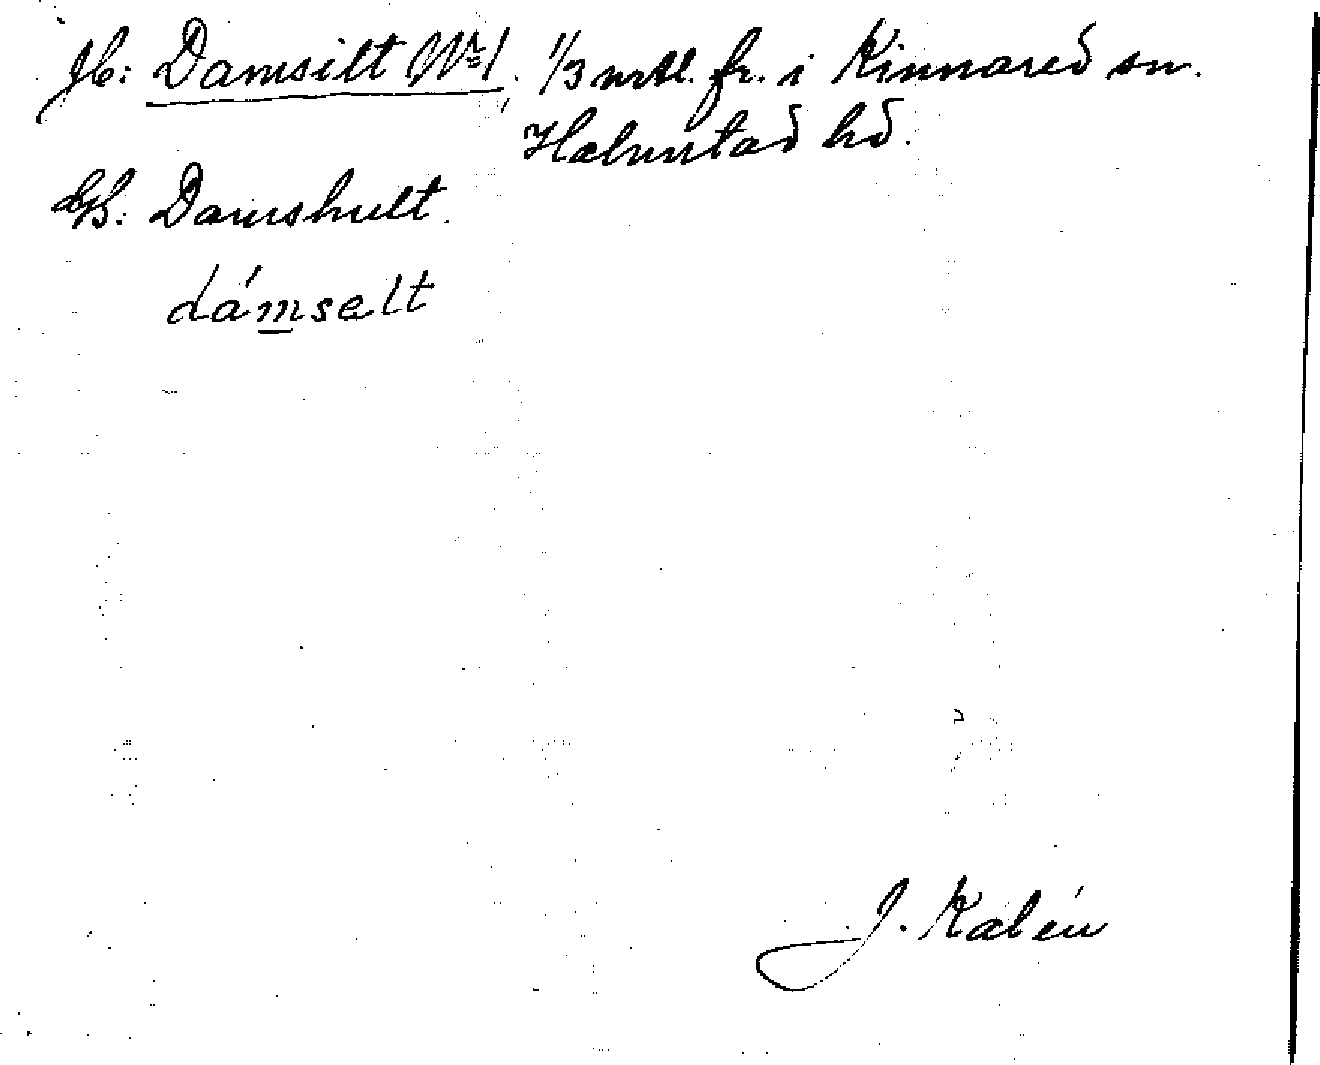 Jb: Damsilt No 1. 1/3 mtl. fr. i Kinnared sn.
Halmstad hd.
GB: Damshult.
dámsalt
J. Kalén